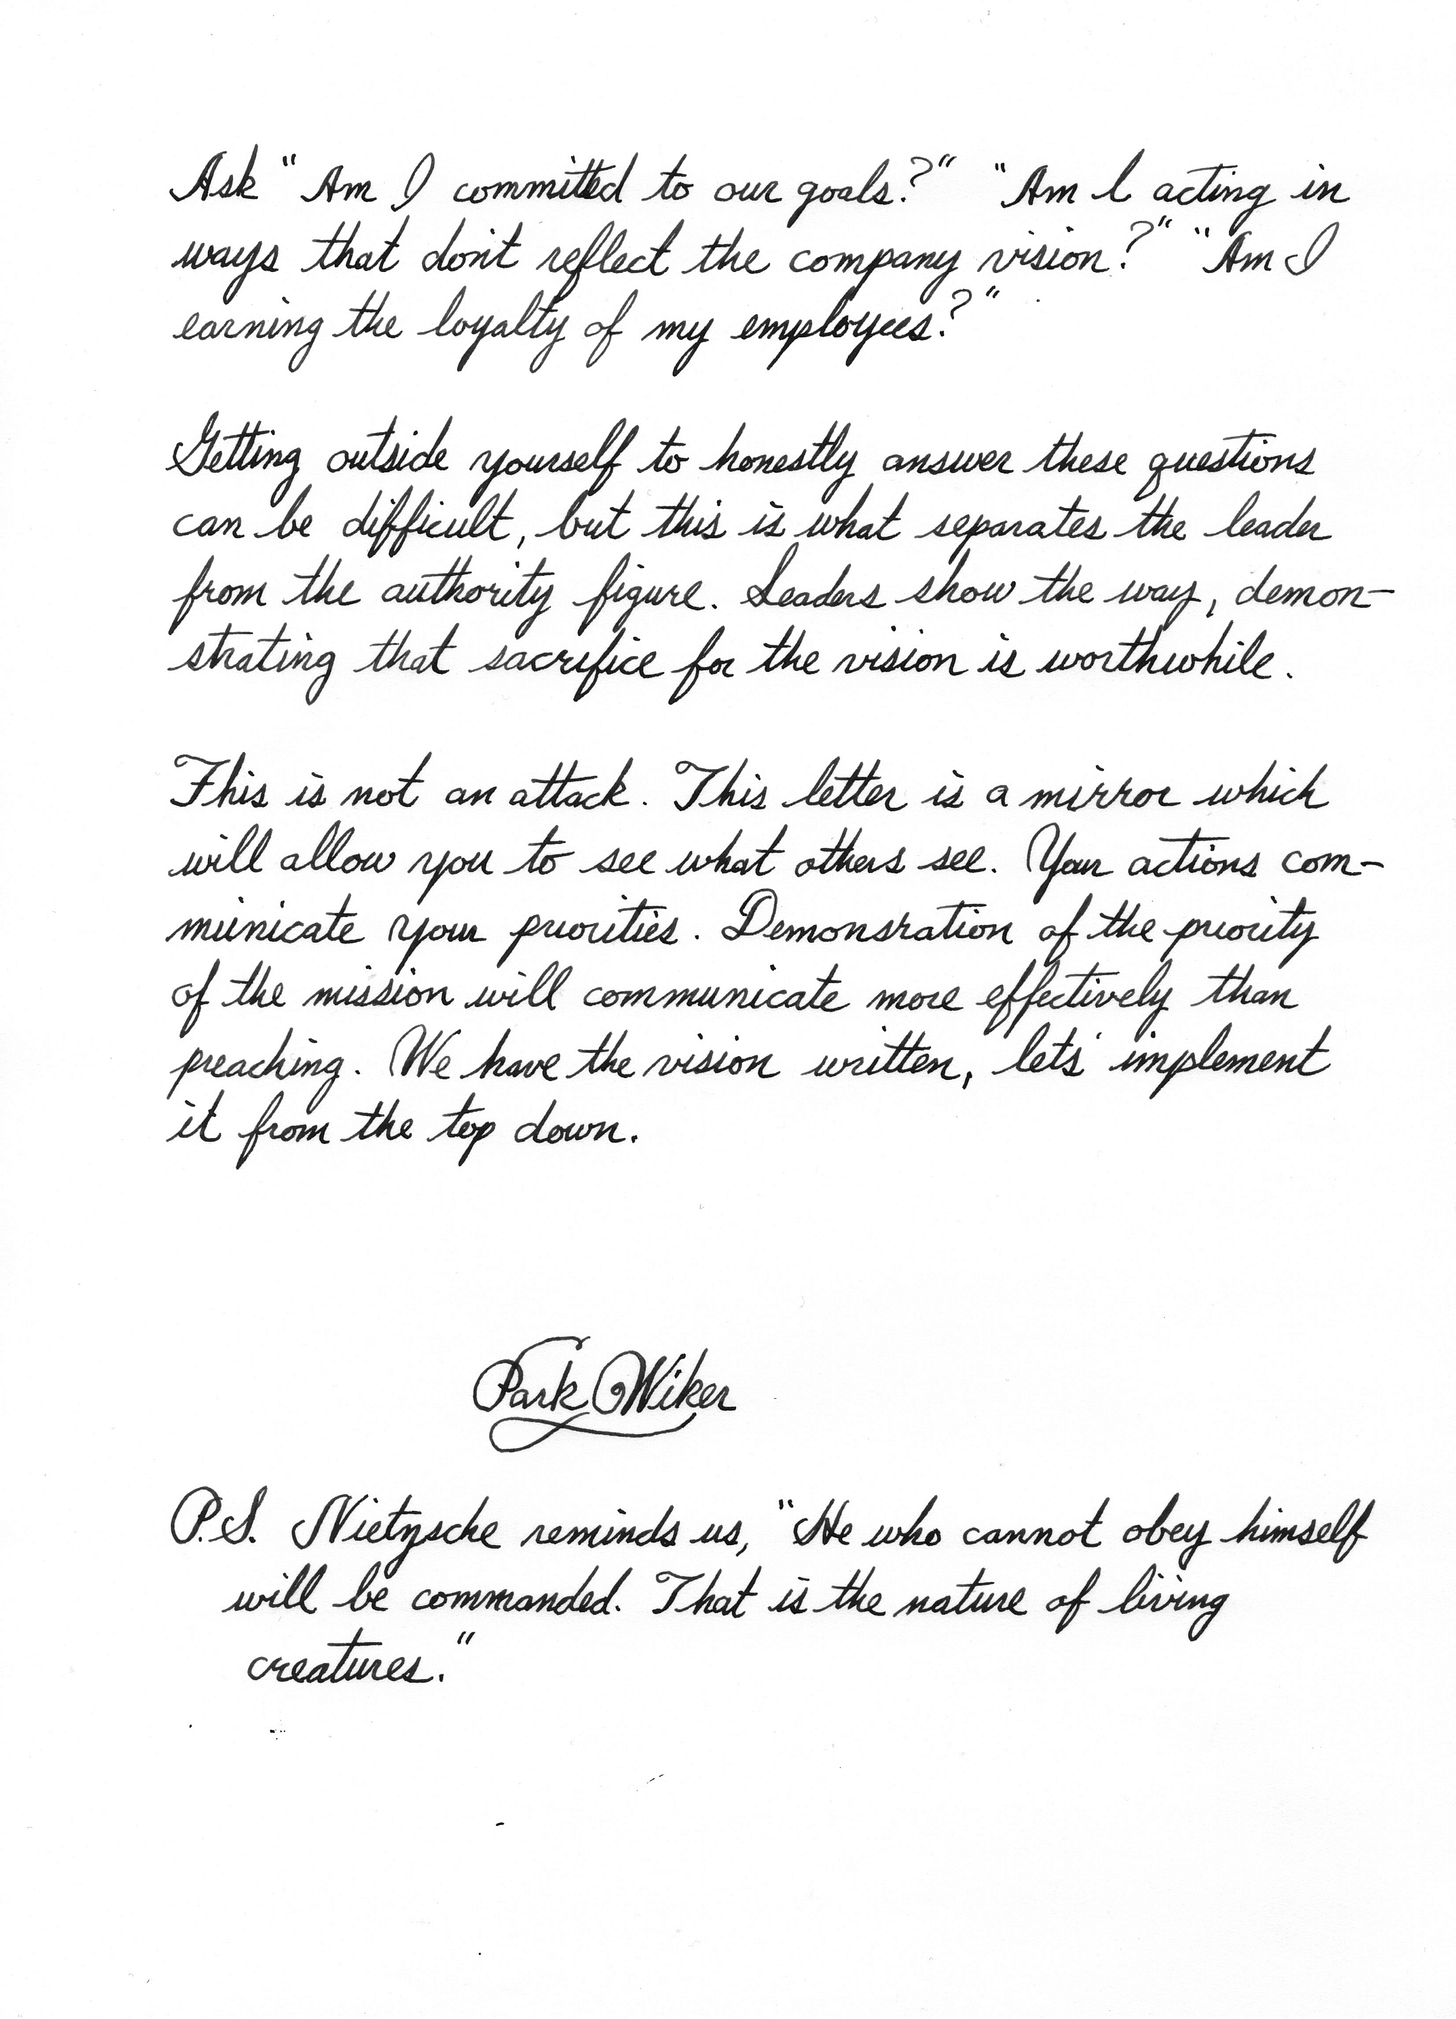 Ask "Am I committed to our goals?" "Am I acting in
ways that don't reflect the company vision?" "Am I
earning the loyalty of my employees?"
Getting outside yourself to honestly answer these questions
can be difficult, but this is what separates the leader
from the authority figure. Leaders show the way, demon-
strating that sacrifice for the vision is worthwhile.
This is not an attack. This letter is a mirror which
will allow you to see what others see. Your actions com-
municate your priorities. Demonsration of the priority
of the mission will communicate more effectively than
preaching. We have the vision written, lets' implement
it from the top down.
Park Wiker
P.S. Nietzsche reminds us, "He who cannot obey himself
will be commanded. That is the nature of living
creatures."